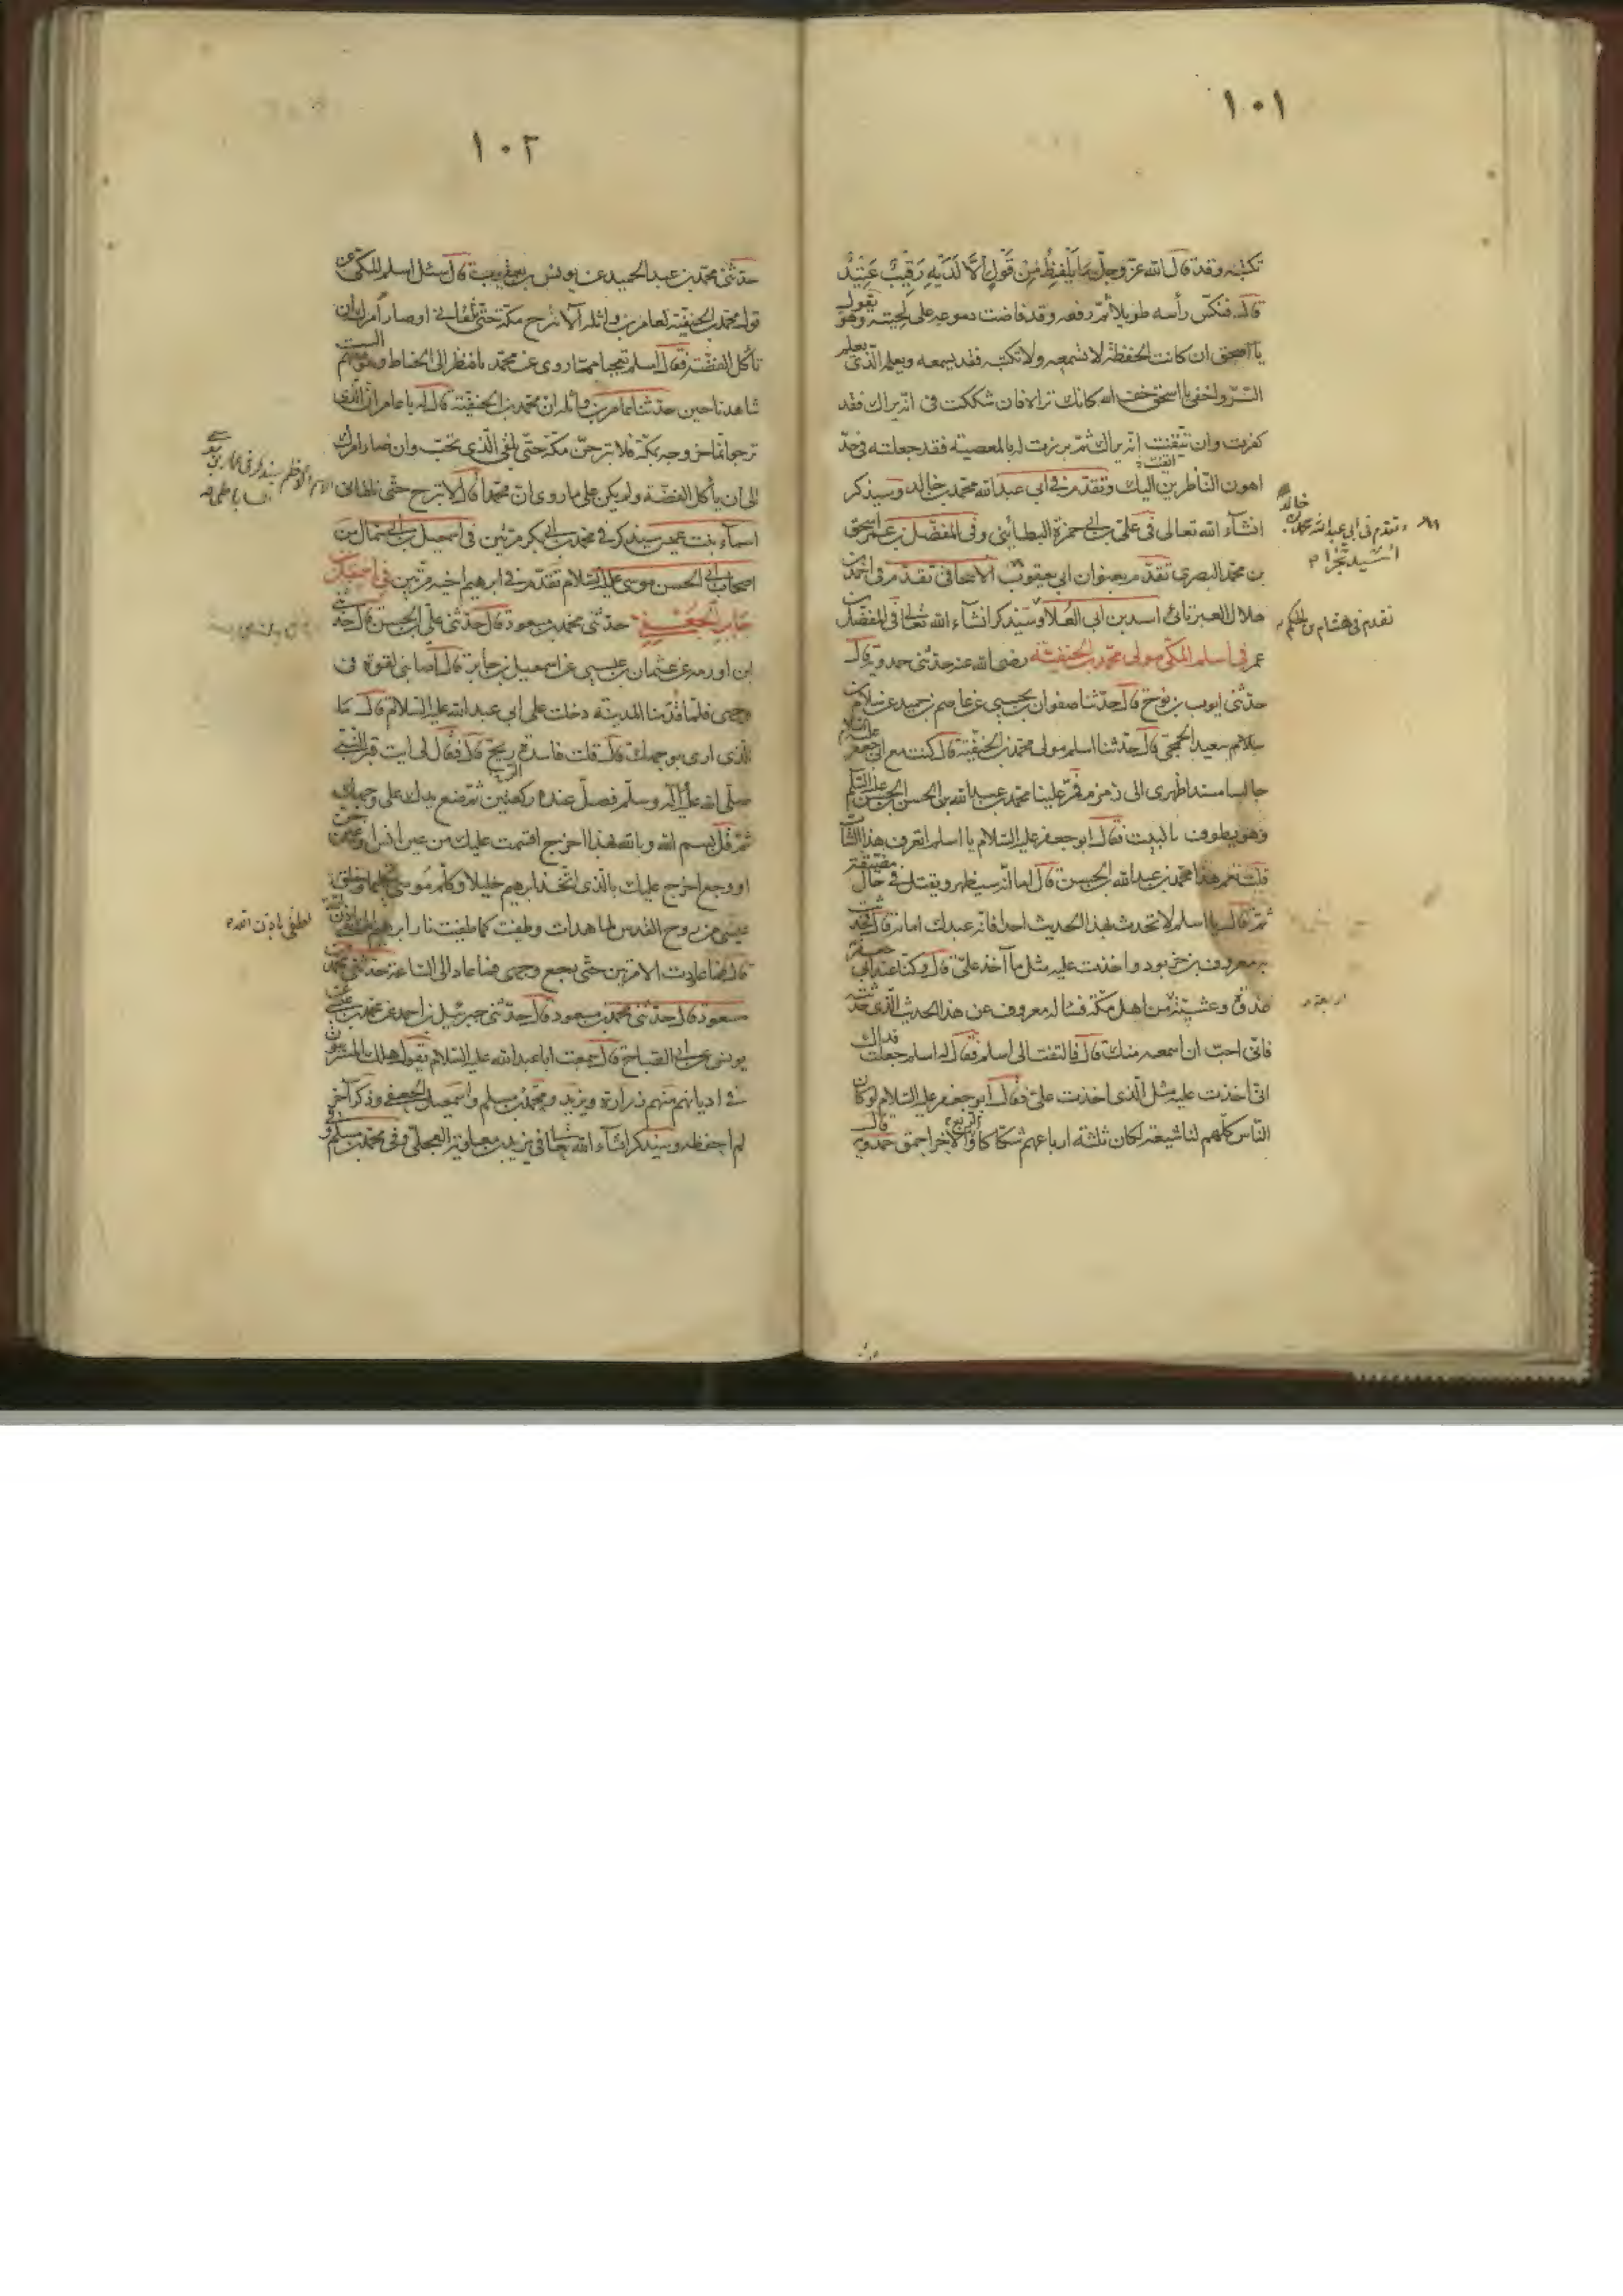 ١٠١
تكتبه وقد قال الله عز وجل ما يَلْفِظُ مِنْ قَوْلٍ اِلَّا لَدَيْهِ رَقِيبٌ عَتِيدٌ
قال فنكس رأسه طويلا ثم رفعه وقد فاضت دموعه على لحيته وهو يقول
يا اسحق ان كانت الحفظة لا تسمعه ولا تكتبه فقد يسمعه ويعلم الذي يعلم
السر واخفى يا اسحق خف الله كانك تراه فان شككت في انه يراك فقد
كفرت وان تيقنت انه يراك ثم برزت له بالمعصية فقد جعلته في حد
اهون الناظرين اليك وتقدم في ابي عبد الله محمد بن خالد وسيذكر
انشاء الله تعالى في علي بن ابي حمزة البطائني وفي المفضل بن عمر اسحق
بن محمد البصري تقدم بعنوان ابي يعقوب تقدم في احمد بن
هلال العبرتائي اسد بن ابي العلاء وسيذكر انشاء الله تعالى في المفضل بن
عمر في اسلم المكي مولى محمد بن الحنفية رضي الله عنه حدثني حمدويه قال
حدثني ايوب بن نوح قال حدثنا صفوان بن يحيى عن عاصم بن حميد عن سلام بن
سعيد الجمحي قال حدثنا اسلم مولى محمد بن الحنفية قال كنت مع ابي جعفر عليه السلام
جالسا مسندا ظهري الى زمزم فمر علينا محمد بن عبد الله بن الحسن
وهو يطوف بالبيت فقال ابو جعفر عليه السلام يا اسلم اتعرف هذا الشاب
قلت نعم هذا محمد بن عبد الله بن الحسن قال اما انه سيظهر ويقتل في حال مضيعة
ثم قال يا اسلم لا تحدث بهذا الحديث احدا فانه عندك امانة قال فحدثت
به معروف بن خربوذ واخذت عليه مثل ما آخذ علي قال وكنا عند ابي جعفر
غدوة وعشية من اهل مكة فسأله معروف عن هذا الحديث الذي حدثنيه
فاني احب ان اسمعه منك قال فالتفت الى اسلم فقال له اسلم جعلت فداك
اني اخذت عليه مثل الذي اخذت علي فقال ابو جعفر عليه السلام لو كان
الناس كلهم لنا شيعة لكان ثلثة ارباعهم شكاكا والربع الآخر احمق قال حمدويه
وتقدم في ابي عبد الله محمد بن خالد
تقدم في هشام بن الحكم
اربعة
١٠٢
حدثني محمد بن عبد الحميد عن يونس بن يعقوب قال سئل اسلم المكي عن
قول محمد بن الحنفية لعامر بن واثلة لا تبرح مكة حتى تلقاني او صار امرك ان
تأكل القضة فقال اسلم تعجبا مما روى عن محمد يا فنظر الى الخياط وهو الست
شاهدنا حين حدثنا عامر بن واثلة ان محمد بن الحنفية قال له يا عامر ان الذي
ترجو انما خروجه بمكة فلا تبرحن مكة حتى تلقى الذي تحب وان صار امرك
الى ان تأكل القضة ولم يكن على ما روى ان محمدا قال لا تبرح حتى تلقاني
اسماء بنت عميس سيذكر في محمد بن ابي بكر مرتين في اسمعيل بن ابي سمال من
اصحاب ابي الحسن موسى عليه السلام تقدم في ابرهيم اخيه مرتين في اسمعيل بن
جابر الجعفي حدثني محمد بن مسعود قال حدثني علي بن الحسن قال حدثني
ابن اورمة عن عثمان بن عيسى عن اسمعيل بن جابر قال اصابني لقوة في
وجهي فلما قدمنا المدينة دخلت على ابي عبد الله عليه السلام قال ما
الذي ارى بوجهك قال قلت فاسدة ريح قال فقال لي ايت قبر النبي
صلى الله عليه وآله وسلم فصل عنده ركعتين ثم ضع يدك على وجهك
ثم قل بسم الله وبالله بهذا اخرج اقسمت عليك من عين انس او عين جن
او وجع اخرج عليك بالذي اتخذ ابرهيم خليلا وكلم موسى تكليما وخلق
عيسى من روح القدس لما هدات وطفيت كما طفيت نار ابرهيم
قال فما عاودت الا مرتين حتى رجع وجهي فما عاد الى الساعة حدثني محمد بن
مسعود قال حدثني محمد بن مسعود قال حدثني جبرئيل بن احمد عن محمد بن عيسى عن
يونس عن ابي الصباح قال سمعت ابا عبد الله عليه السلام يقول هلك المتريسون
في اديانهم منهم زرارة وبريد ومحمد بن مسلم واسمعيل الجعفي وذكر آخر
لم احفظه وسيذكر انشاء الله تعالى في بريد بن معاوية العجلي وفي محمد بن مسلم وفي
اطفئ باذن الله